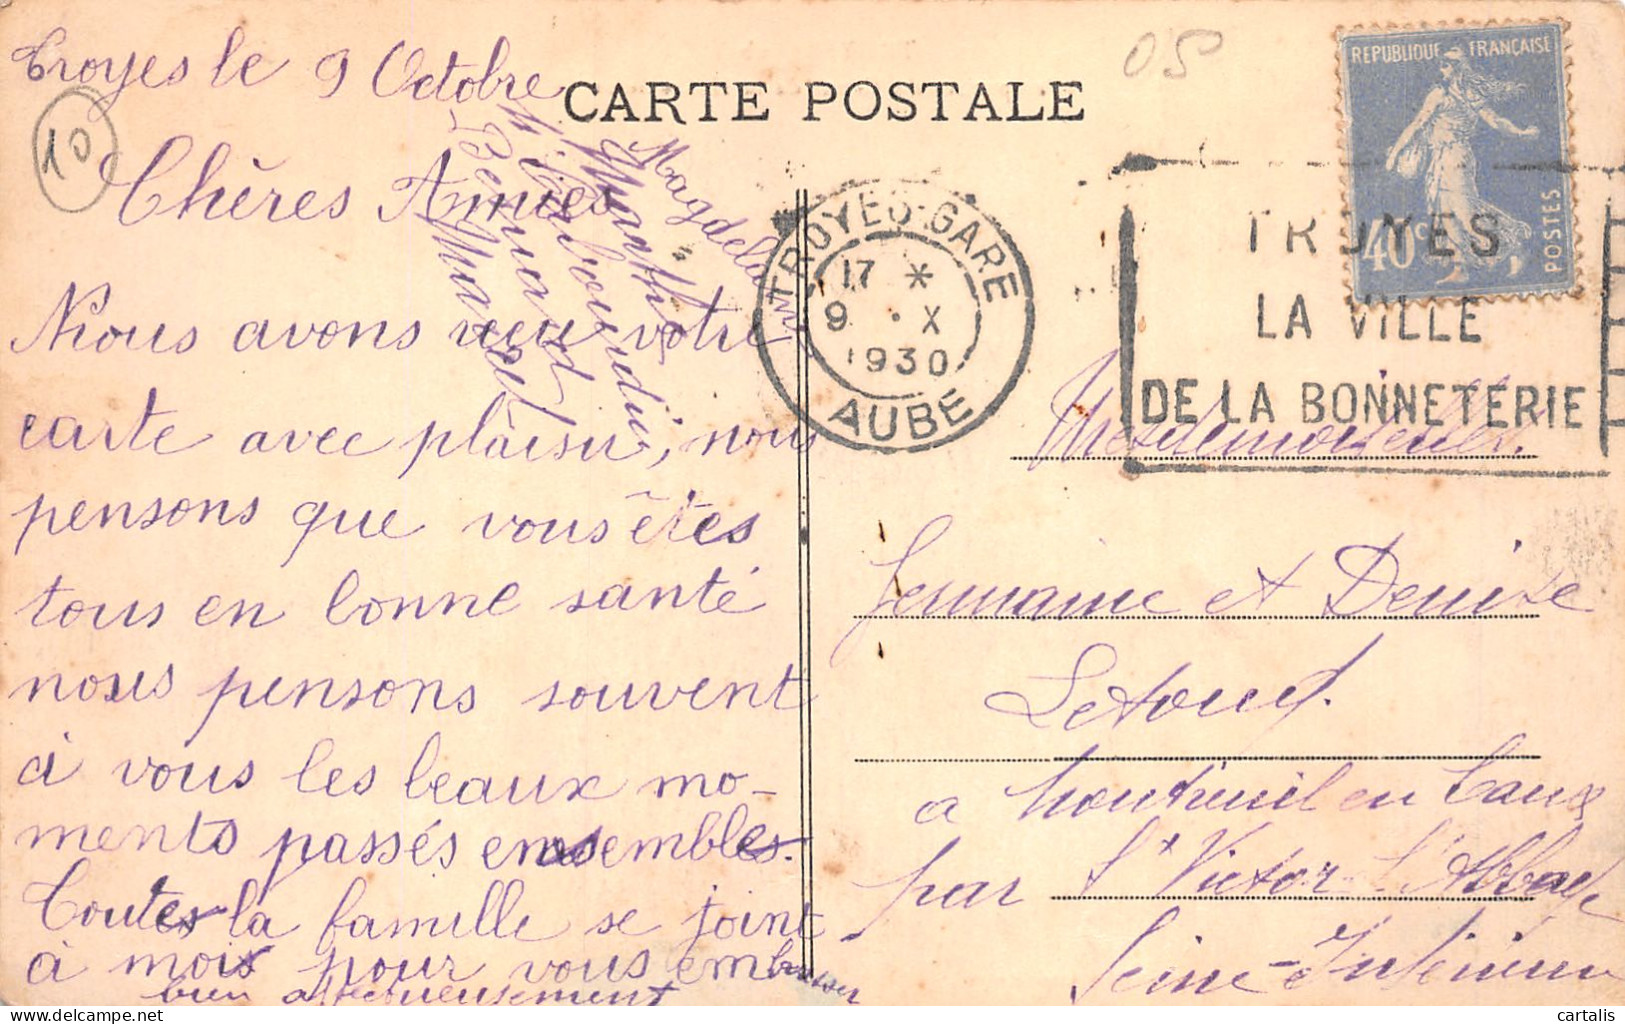 Troyes le 9 Octobre
CARTE POSTALE
05
10
REPUBLIQUE FRANÇAISE
POSTES
40c
TROYES-GARE
17 *
9 . X
1930
AUBE
TROYES
LA VILLE
DE LA BONNETERIE
Chères Amies
Nous avons reçu votre
carte avec plaisir, nous
pensons que vous êtes
tous en bonne santé
nous pensons souvent
à vous les beaux mo-
ments passés ensembles.
Toutes la famille se joint
à mois pour vous embrasser
bien affectueusement
Magdelaine
Marthe
Bernard
Marcel
Mesdemoiselles
Germaine et Denise
Letourf.
a Montreuil en Caux
par St Victor l'Abbaye
Seine-Inférieure
cartalis